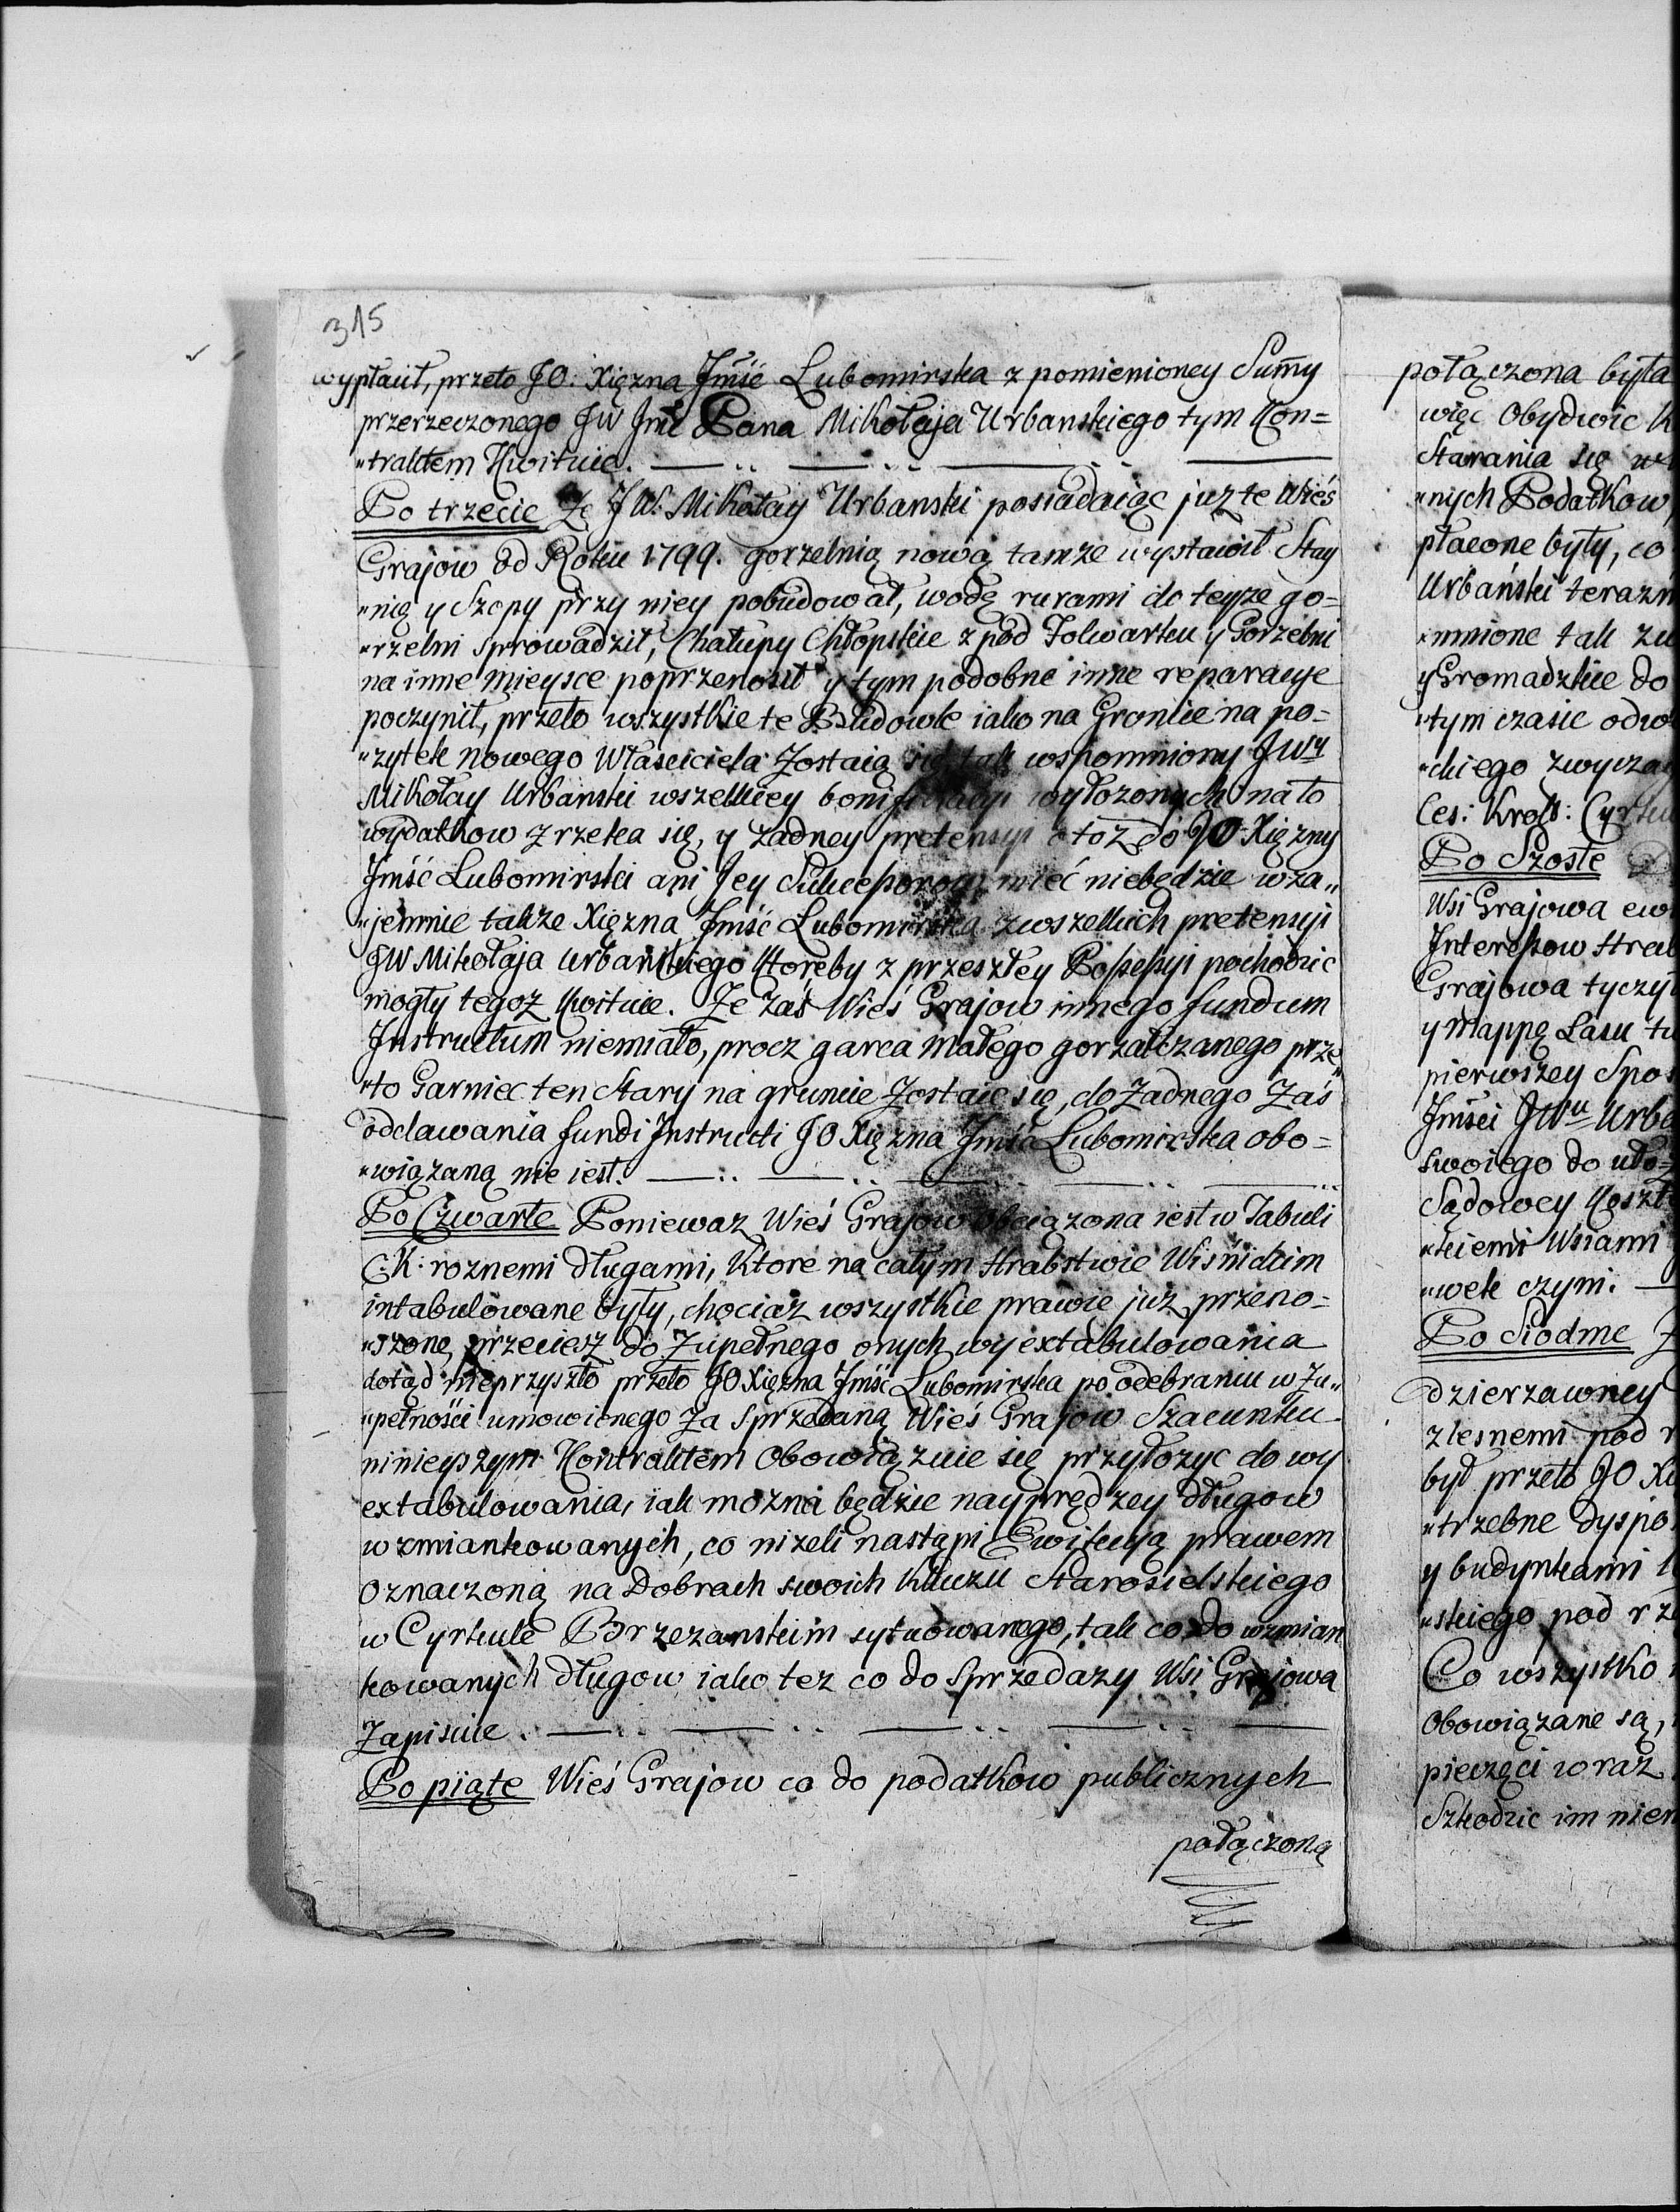 315
wypłacił, przeto JO: Xięzna Jmść Lubomirska z pomienioney Sumy
przerzeczonego JW Jmć Pana Mikołaja Urbanskiego tym Kon=
„traktem Kwituie.
Po trzecie Ze JW. Mikołay Urbanski posiadaiąc juz te Wieś
Grajow od Roku 1799. gorzelnią nową tamze wystawił Stay
„nię y Szopy przy niey pobudował, wodę rurami do teyze go=
„rzelni sprowadził, Chałupy Chłopskie z pod Folwarku y Gorzelni
na inne mieysce poprzenosił y tym podobne inne reparacye
poczynił, przeto wszystkie te Budowle iako na Groncie na po=
„zytek nowego Właściciela zostaią się, tak wspomniony JWy
Mikołay Urbanski wszelkiey bonifikacyi wyłozonych na to
wydatkow zrzeka się, y zadney pretensyi o toz do JO Xięzny
Jmść Lubomirski ani Jey Sukcessorow mieć niebędzie wza„
„jemnie takze Xięzna Jmść Lubomirska z wszelkich pretensyi
JW Mikołaja Urbańskiego Któreby z przeszłey Possessyi pochodzic
mogły tegoz Kwituie. Ze zaś Wieś Grajow innego fundum
Instructum niemiało, procz garca małego gorzałczanego prze„
„to Garniec ten Stary na gruncie zostaie się, do zadnego zaś
oddawania fundi Instructi JO Xięzna Jmść Lubomirska obo=
„wiązaną nie iest.
Po Czwarte Poniewaz Wieś Grajow obciązona iest w Tabuli
C: K: roznemi długami, Ktore na całym Hrabstwie Wiśnickim
intabulowane były, chociaz wszystkie prawie już przeno=
„szone, przeciesz do zupełnego onych wyextabulowania
dotąd nieprzyszło przeto JO Xięzna Jmść Lubomirska po odebraniu w zu„
„pełności umowionego za sprzedaną Wieś Grajow Szacunku
ninieyszym Kontraktem obowiązuie się przyłozyc do wy
extabulowania, iak mozna będzie nayprędzey długow
wzmiankowanych, co nizeli nastąpi Ewikcyą prawem
oznaczoną na Dobrach swoich Kluczu Starosielskiego
w Cyrkule Brzezanskim sytuowanego, tak co do wzmian
kowanych długow iako tez co do Sprzedazy Wsi Grajowa
Zapisuie.
Po piąte Wieś Grajow co do podatkow publicznych
połączoną
połączona była
więc Obydwie
Starania się
„nych Podatkow,
płacone były, co
Urbański
„mnione tak
y Gromadzkie do
„tym czasie
„ckiego
Ces: Krol:
Po Szoste
Wsi Grajowa
Interessow
Grajowa
y Mappę Lasu
pierwszey
Jmści JWu
swoiego do
Sądowey
„kiemi Wsiami
„wek czyni.
Po Siodme
dzierzawney
z lesnemi pod
był przeto JO
„trzebne
y budynkami
„skiego pod
Co wszystko
Obowiązane są,
pieczęci wraz
Szkodzic im